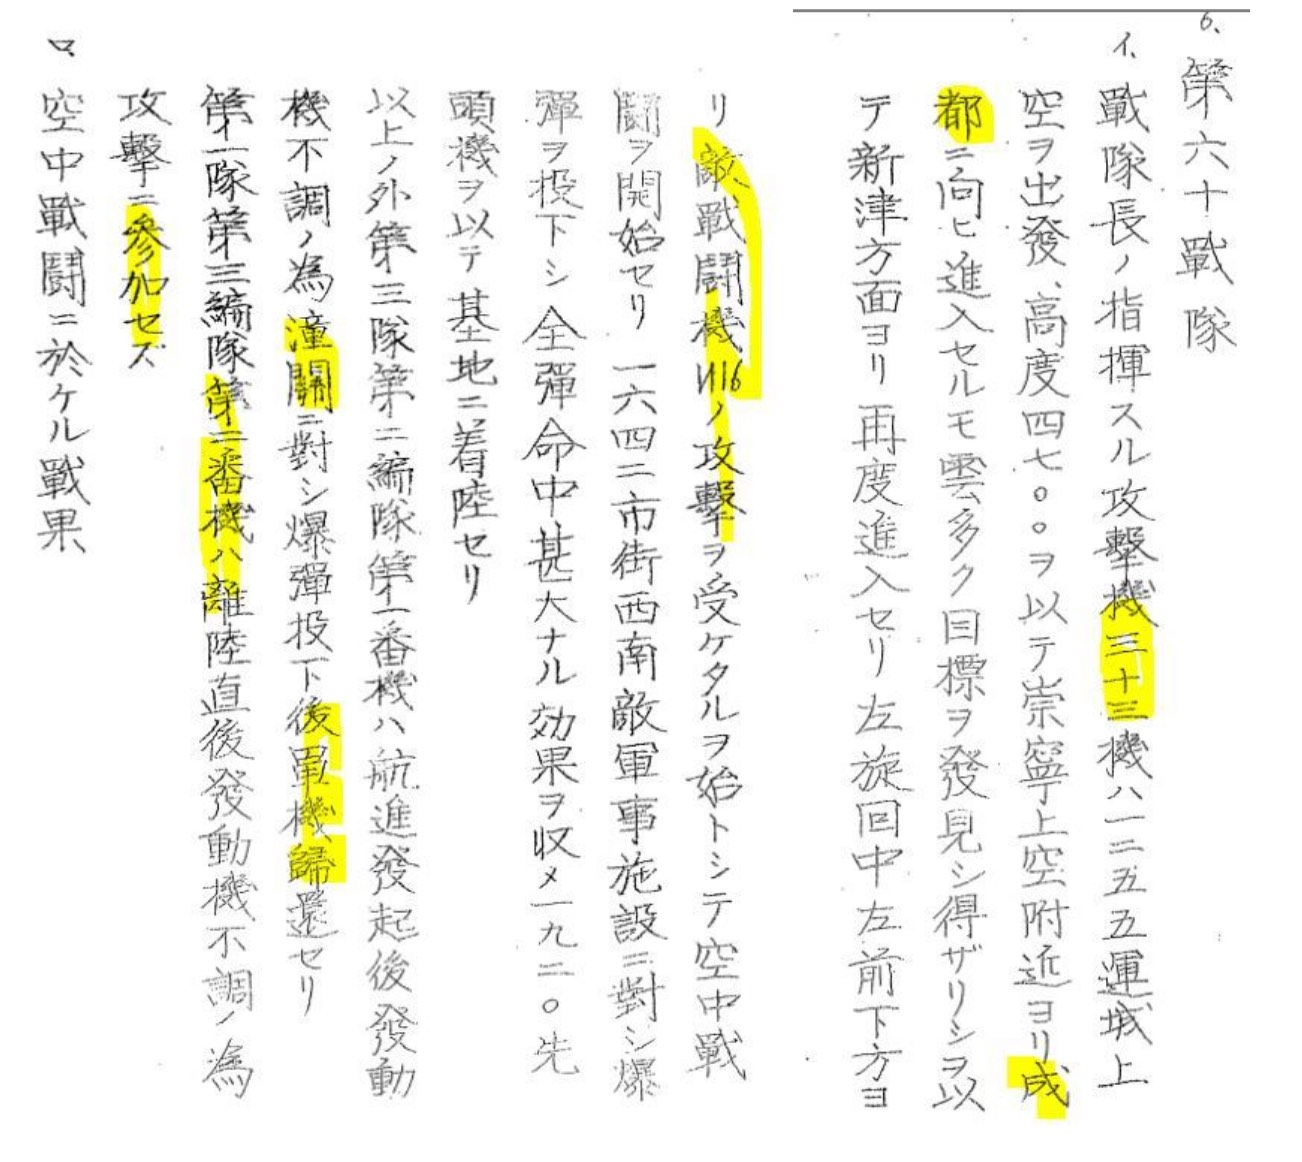 6、第六十戰隊
イ、戰隊長ノ指揮スル攻擊機三十三機ハ一二五五運城上
空ヲ出發、高度四七〇〇ヲ以テ崇寧上空附近ヨリ成
都ニ向ヒ進入セルモ雲多ク目標ヲ發見シ得ザリシヲ以
テ新津方面ヨリ再度進入セリ左旋回中左前下方ヨ
リ敵戰鬪機И16ノ攻擊ヲ受ケタルヲ始トシテ空中戰
鬪ヲ開始セリ 一六四二市街西南敵軍事施設ニ對シ爆
彈ヲ投下シ全彈命中甚大ナル効果ヲ収メ一九二〇先
頭機ヲ以テ基地ニ着陸セリ
以上ノ外第三隊第二編隊第一番機ハ航進發起後發動
機不調ノ為潼關ニ對シ爆彈投下後單機歸還セリ
第一隊第三編隊第二番機ハ離陸直後發動機不調ノ為
攻擊ニ參加セズ
ロ、空中戰鬪ニ於ケル戰果